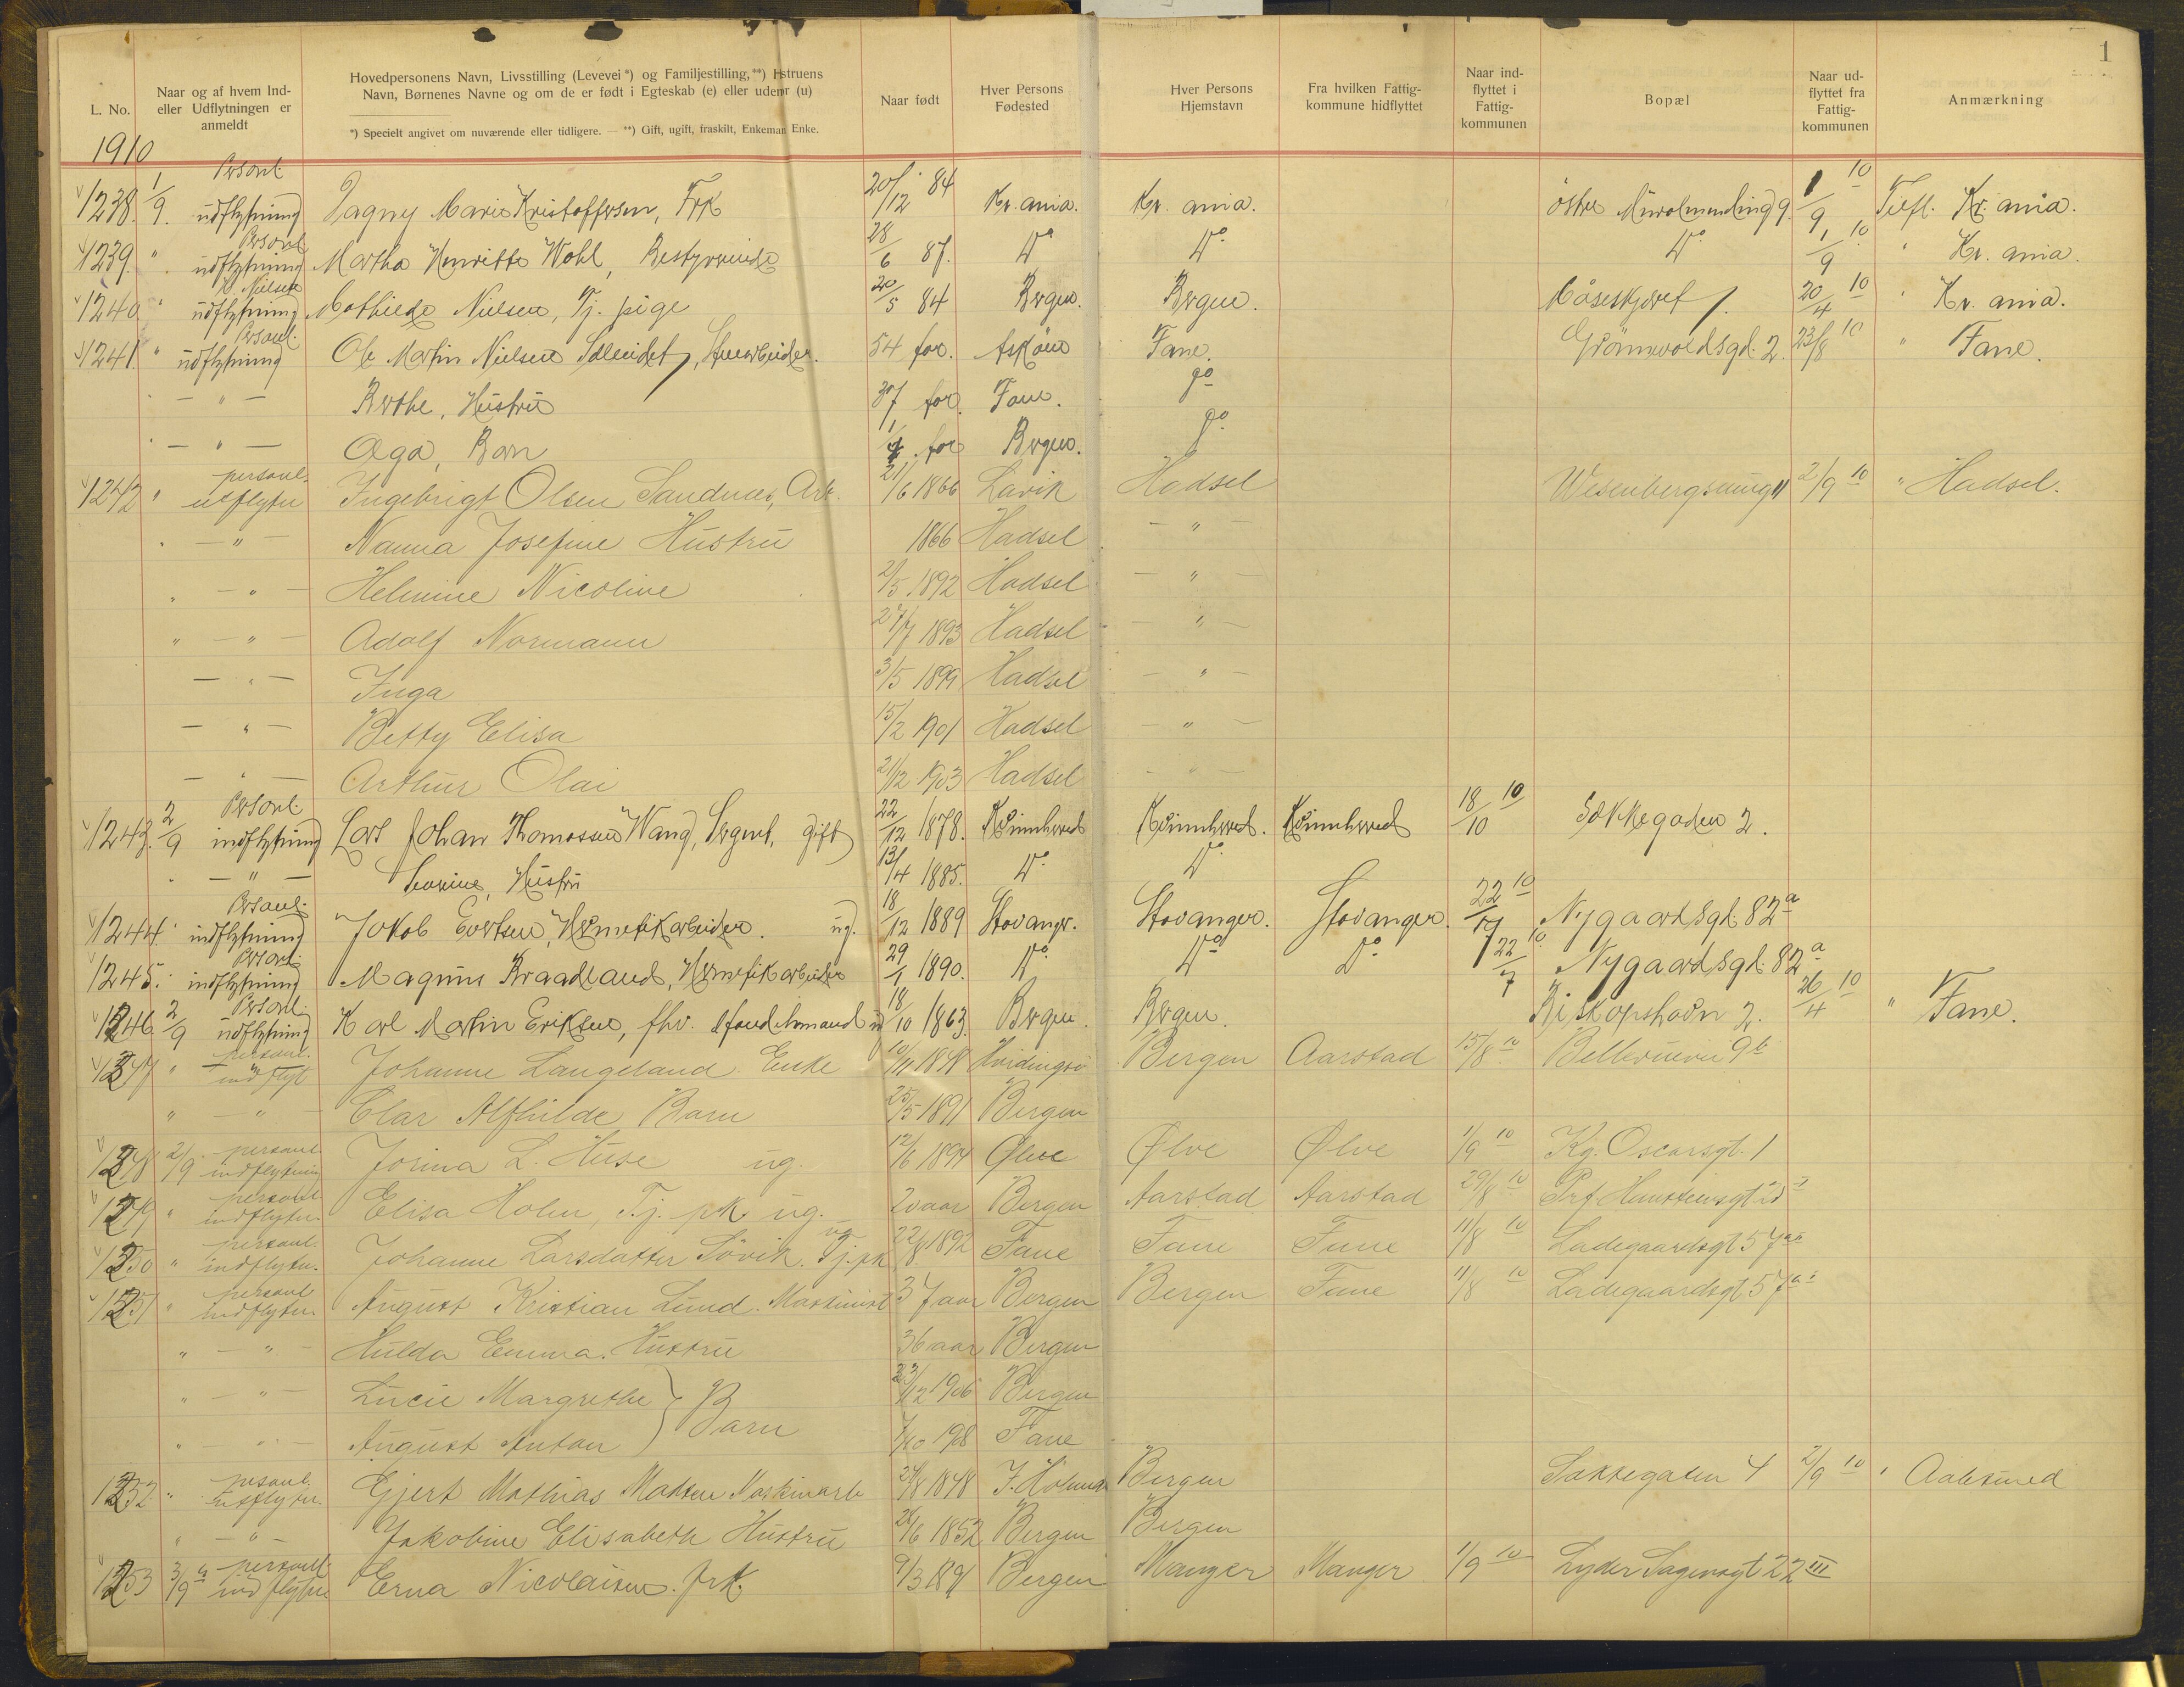 1
L. No.
Naar og af hvem Ind-
eller Udflytningen er
anmeldt
Hovedpersonens Navn, Livsstilling (Levevei *) og Familjestilling, **) Hstruens
Navn, Børnenes Navne og om de er født i Egteskab (e) eller udenfr (u)
*) Specielt angivet om nuværende eller tidligere. — **) Gift, ugift, fraskilt, Enkeman Enke.
Naar født
Hver Persons
Fødested
Hver Persons
Hjemstavn
Fra hvilken Fattig-
kommune hidflyttet
Naar ind-
flyttet i
Fattig-
kommunen
Bopæl
Naar ud-
flyttet fra
Fattig-
kommunen
Anmærkning
1910
1238. 1/9. Personl. udflytning Dagny Marie Kristoffersen, Frk 20/12 84 Kr. ania. Kr. ania. østre 9 1/9 10 Kr. ania.
1239. " Personl. udflytning Martha Henritte Wohl, Bestyrerinde 28/6 87. Do Do Do 1/9 10 " Kr. ania.
1240 " Nielsen udflytning Mathilde Nielsen, Tj. pige 20/5 84 Bergen. Bergen. Måseskjæret 20/4 10 " Kr. ania.
1241. " Personl. udflytning Ole Martin Nielsen 54 for. Askøen Fane. Grønnevoldsgd. 2. 23/8 10 " Fane.
— " — Berthe, Hustru 37 for. Fane. do
— " — Aga, Barn for Bergen. do
1242 " personl. utflytn Ingebrigt Olsen Sandnes, Arb. 21/6 1866 Lavik Hadsel 2/9 10 " Hadsel.
— " — Nanna Josefine Hustru 1866 Hadsel — " —
" — " — Helmine Nicoline 2/5 1892 Hadsel — " —
" — " — Adolf Normann 27/7 1893 Hadsel — " —
— " — Inga 3/5 1899 Hadsel — " —
— " — Betty Elisa 15/2 1901 Hadsel — " —
— " — Arthur Olai 21/12 1903 Hadsel — " —
1243. 2/9 Personl. indflytning Carl Johan Thomassen Wang, Sergent, gift 22/12 1878. Kvinnherred Kvinnherred. Kvinnherred 18/10 10 2.
— " — Severine, Hustru 13/4 1885. Do Do
1244. " Personl. indflytning Jakob Evertsen, Hermetikarbeider. ug. 18/12 1889 Stavanger. Stavanger. Stavanger. 22/7 10 Nygaardsgd. 82a
1245. " Personl. indflytning Magnus Braadland, Hermetikarbeider 29/1 1890. Do Do Do 22/7 10 Nygaardsgd. 82a
1246 2/9 Personl. udflytning Karl Martin Eriksen, fhv. 18/10 1863. Bergen. Bergen. Biskopshavn 2. 26/4 10 " Fane.
1247 " personl. indflyt Johanne Langeland Enke 10/11 Hvidingsø Bergen Aarstad 15/8 10 9b
" — " — Alfhilde Barn 25/5 1891 Bergen
1248 2/9 personl. indflytning Jorina L. Huse ug 12/6 1894 Ølve Ølve Ølve 1/9 10 Kg. Oscarsgt. 1
1249 " personl. indflytn. Elisa Holm, Tj. pk ug. 20 aar Bergen Aarstad Aarstad 29/8 10
1250 " personl. indflytn. Johanne Larsdatter Søvik. Tj. pk ug 22/8 1892 Fane Fane Fane 11/8 10 Ladegaardsgt 57
1251 " personl indflytn. August Kristian Lund. Maskinist 37 aar Bergen Bergen Fane 11/8 10 Ladegaardsgt 57
" — " — Hulda Emma. Hustru 36 aar Bergen
" — " — Lucie Margrethe } Barn 23/12 1906 Bergen
" — " — August Anton 7/10 1908 Fane
1252 " personl. utflytn. Gjert Mathias Madsen Maskinarb 24/8 1848 Bergen 4 2/9 10 " Aalesund
" — " Jakobine Elisabeth Hustru 26/6 1852 Bergen Bergen
1253 3/9 personl. indflytn Erna Nicolaisen. Frk. 9/3 1891 Bergen Manger Manger 1/9 10 Lyder Sagensgt 22 III